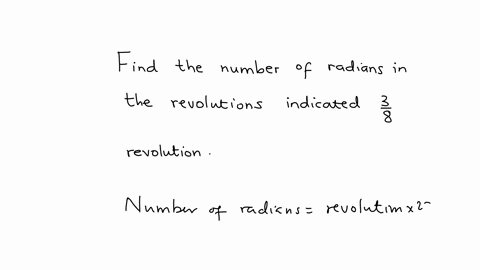 Find the number of radians in
the revolutions indicated 3/8
revolution.
Number of radians = revolution × 2